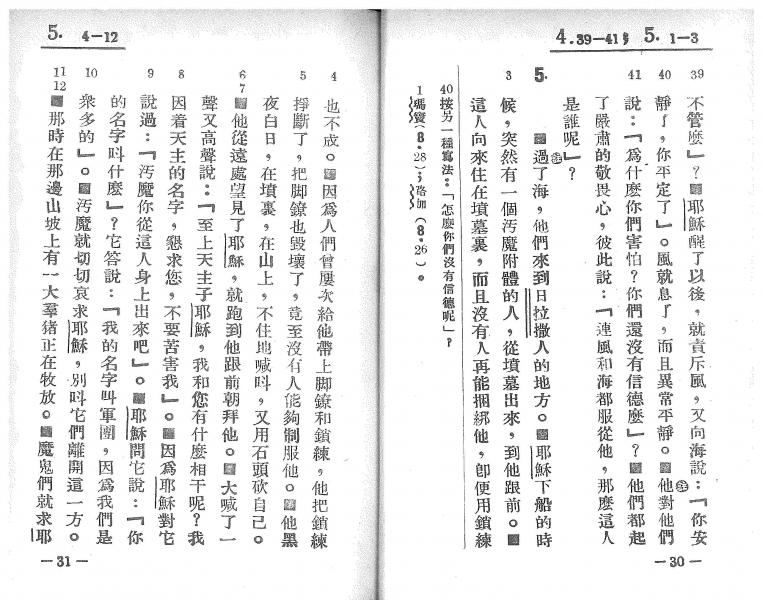 4.39—41; 5. 1—3
39 不管麼」?■耶穌醒了以後,就責斥風,又向海說:「你安
40 靜了,你平定了」。風就息了,而且異常平靜。■他對他們
41 說:「爲什麽你們害怕?你們還沒有信德麼」?㊟■他們都起
了嚴肅的敬畏心,彼此說:「連風和海都服從他,那麽這人
是誰呢」?
5. ■過了㊟海,他們來到日拉撒人的地方。■耶穌下船的時
3 候,突然有一個汚魔附體的人,從墳墓出來,到他跟前。■
這人向來住在墳墓裏,而且沒有人再能捆綁他,卽便用鎖練
40按另一種寫法:「怎麽你們沒有信德呢」?
1瑪竇(8·28);路加(8·26)。
—30—
5. 4—12
4 也不成。■因爲人們曾屢次給他帶上脚鐐和鎖練,他把鎖練
5 掙斷了,把脚鐐也毀壞了,竟至沒有人能夠制服他。■他黑
夜白日,在墳裏,在山上,不住地喊呌,又用石頭砍自己。
6 7 ■他從遠處望見了耶穌,就跑到他跟前朝拜他。■大喊了一
聲又高聲說:「至上天主子耶穌,我和您有什麽相干呢?我
8 因着天主的名字,懇求您,不要苦害我」。■因爲耶穌對它
9 說過:「汚魔你從這人身上出來吧」。■耶穌問它說:「你
的名字呌什麽」?它答說:「我的名字呌軍團,因爲我們是
10 衆多的」。■汚魔就切切哀求耶穌,別呌它們離開這一方。
11 12 ■那時在那邊山坡上有一大羣猪正在牧放。■魔鬼們就求耶
—31—